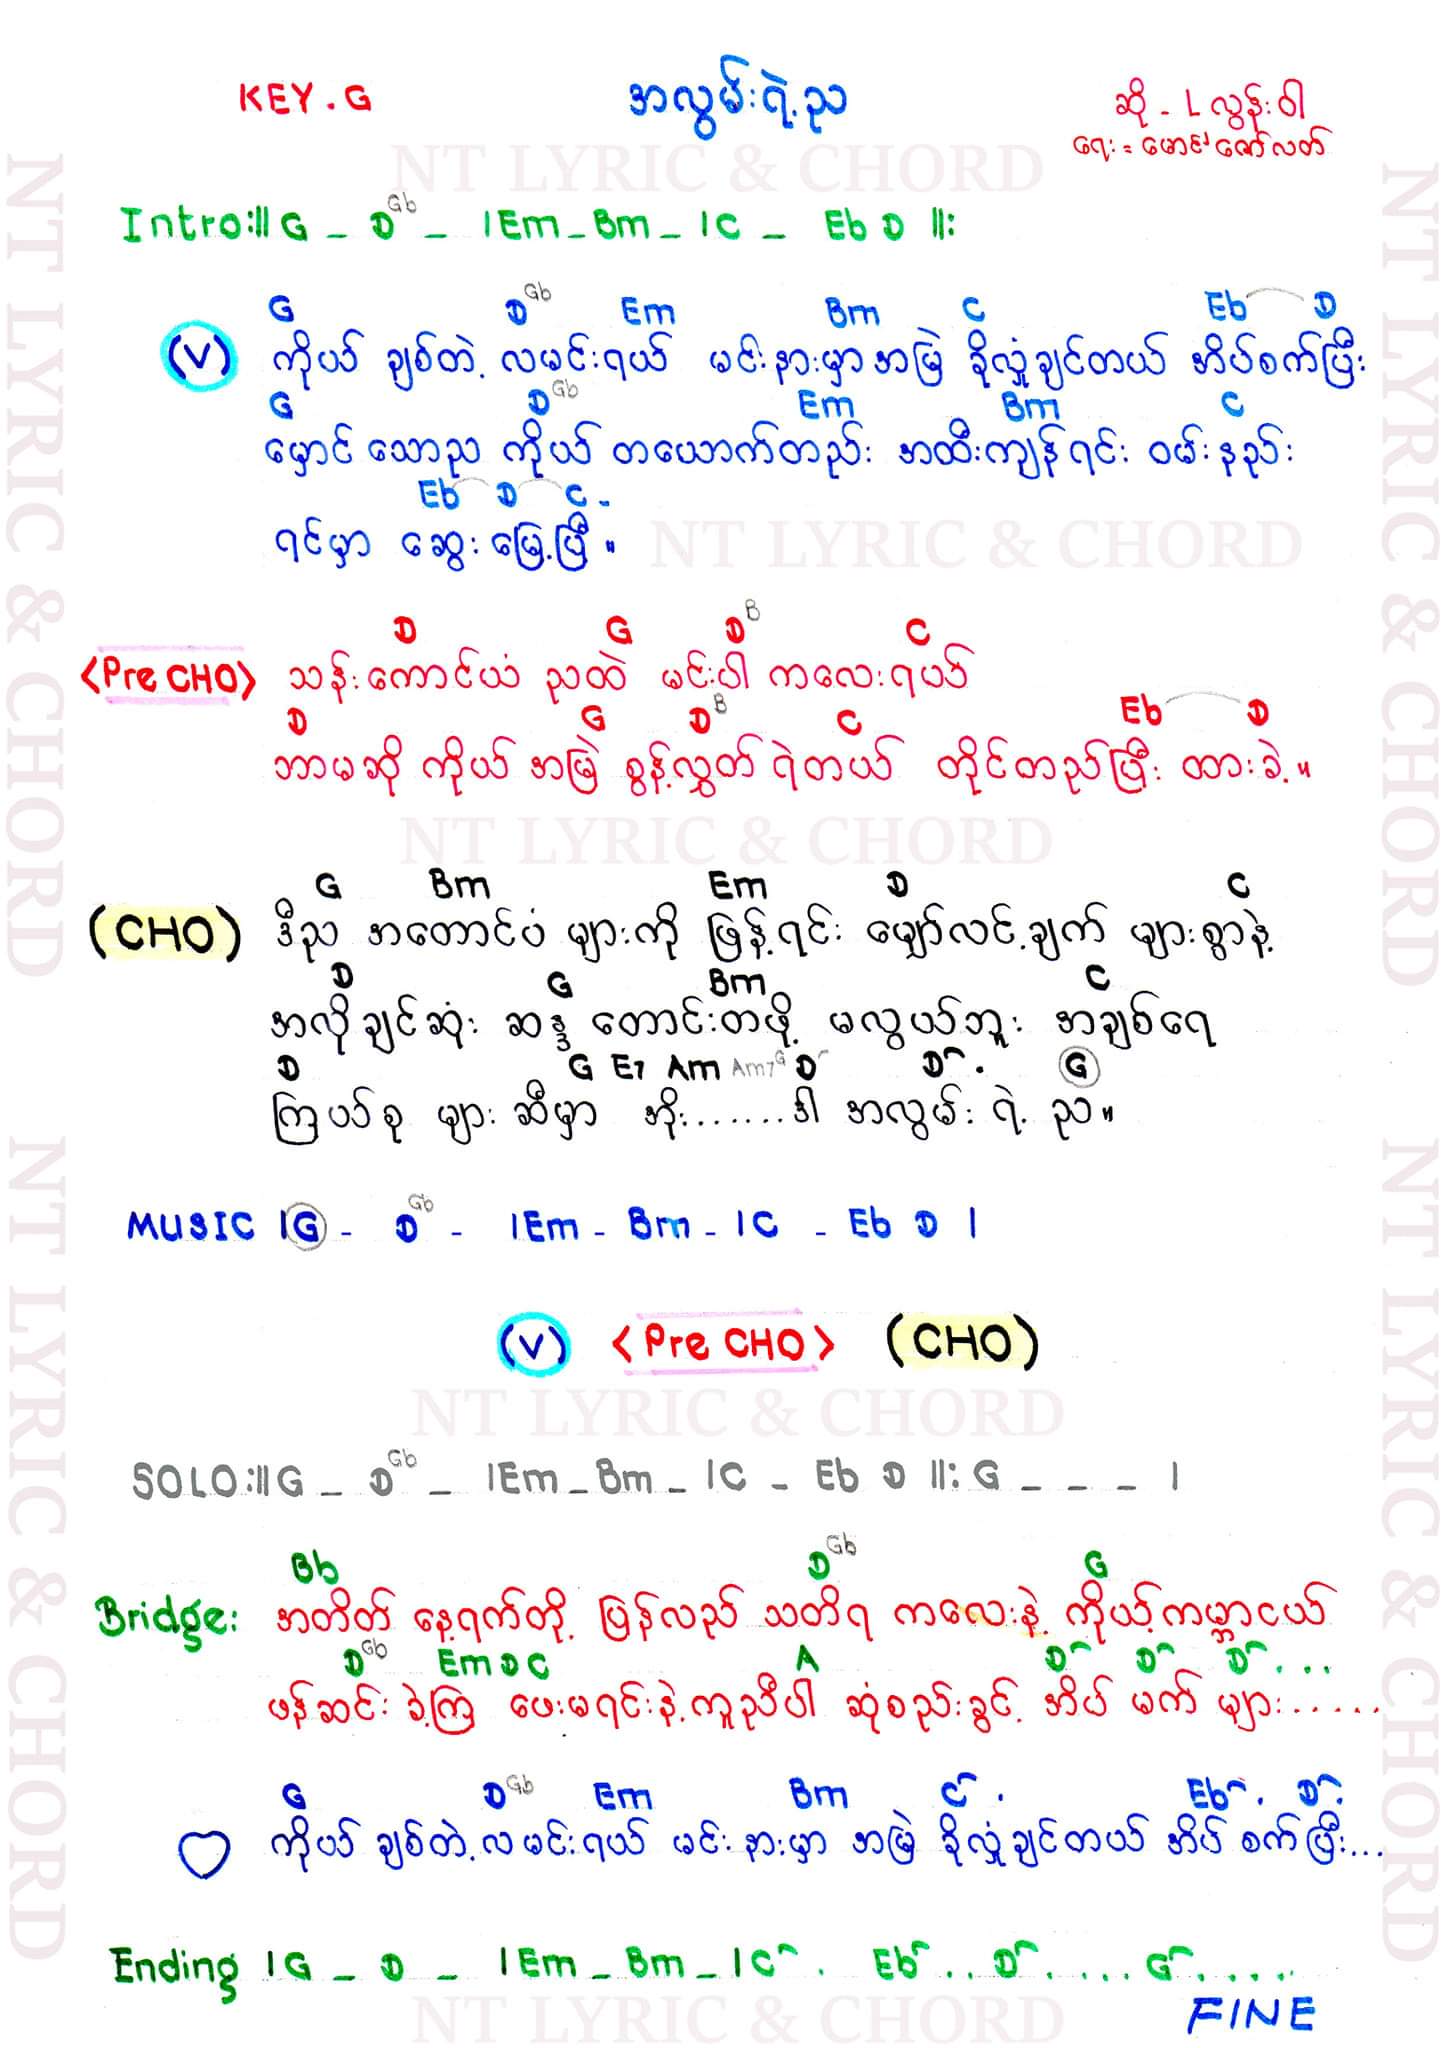 KEY.G
အလွမ်းရဲ့ည
ဆို - L လွန်းဝါ
ရေး = မောင်မော်လတ်
NT LYRIC & CHORD
Intro:॥ G _ D Gb _ | Em _ Bm _ | C _ Eb D ॥:
G D Gb Em Bm C Eb D
(V) ကိုယ် ချစ်တဲ့ လမင်းရယ် မင်းနားမှာ အမြဲ ခိုလှုံချင်တယ် အိပ်စက်ပြီး
G D Gb Em Bm C
မှောင် သောည ကိုယ် တယောက်တည်း အထီးကျန်ရင်း ဝမ်းနည်း
Eb D C -
ရင်မှာ ဆွေးမြေ့ပြီ။
NT LYRIC & CHORD
D G D B C
<Pre CHO> သန်းကောင်ယံ ညထဲ မင်းပါ ကလေးရယ်
D G D B C Eb D
ဘာမဆို ကိုယ် အမြဲ စွန့်လွှတ်ရဲတယ် တိုင်တည်ပြီး ထားခဲ့။
NT LYRIC & CHORD
G Bm Em D C
(CHO) ဒီည အတောင်ပံ များကို ဖြန့်ရင်း မျှော်လင့်ချက် များစွာနဲ့
D G Bm C
အလိုချင်ဆုံး ဆန္ဒ တောင်းတဖို့ မလွယ်ဘူး အချစ်ရေ
D G E7 Am Am7 G D D . G
ကြယ်စု များ ဆီမှာ အိုး.......ဒါ အလွမ်း ရဲ့ ည။
MUSIC | G - D Gb - | Em - Bm - | C - Eb D |
(V) <Pre CHO> (CHO)
NT LYRIC & CHORD
SOLO:॥ G _ D Gb _ | Em _ Bm _ | C - Eb D ॥: G _ _ _ |
Bb D Gb G
Bridge: အတိတ် နေ့ရက်တို့ ပြန်လည် သတိရ ကလေးနဲ့ ကိုယ့်ကမ္ဘာငယ်
D Gb Em D C A D D D ...
ဖန်ဆင်း ခဲ့ကြ ပေးမရင်းနဲ့ကူညီပါ ဆုံစည်းခွင့် အိပ် မက် များ......
G D Gb Em Bm C . Eb . D .
ကိုယ် ချစ်တဲ့ လမင်းရယ် မင်းနားမှာ အမြဲ ခိုလှုံချင်တယ် အိပ် စက်ပြီး...
Ending | G _ D _ | Em _ Bm _ | C . Eb .. D .... G .....
NT LYRIC & CHORD
FINE
NT LYRIC & CHORD
NT LYRIC & CHORD
NT LYRIC & CHORD
NT LYRIC & CHORD